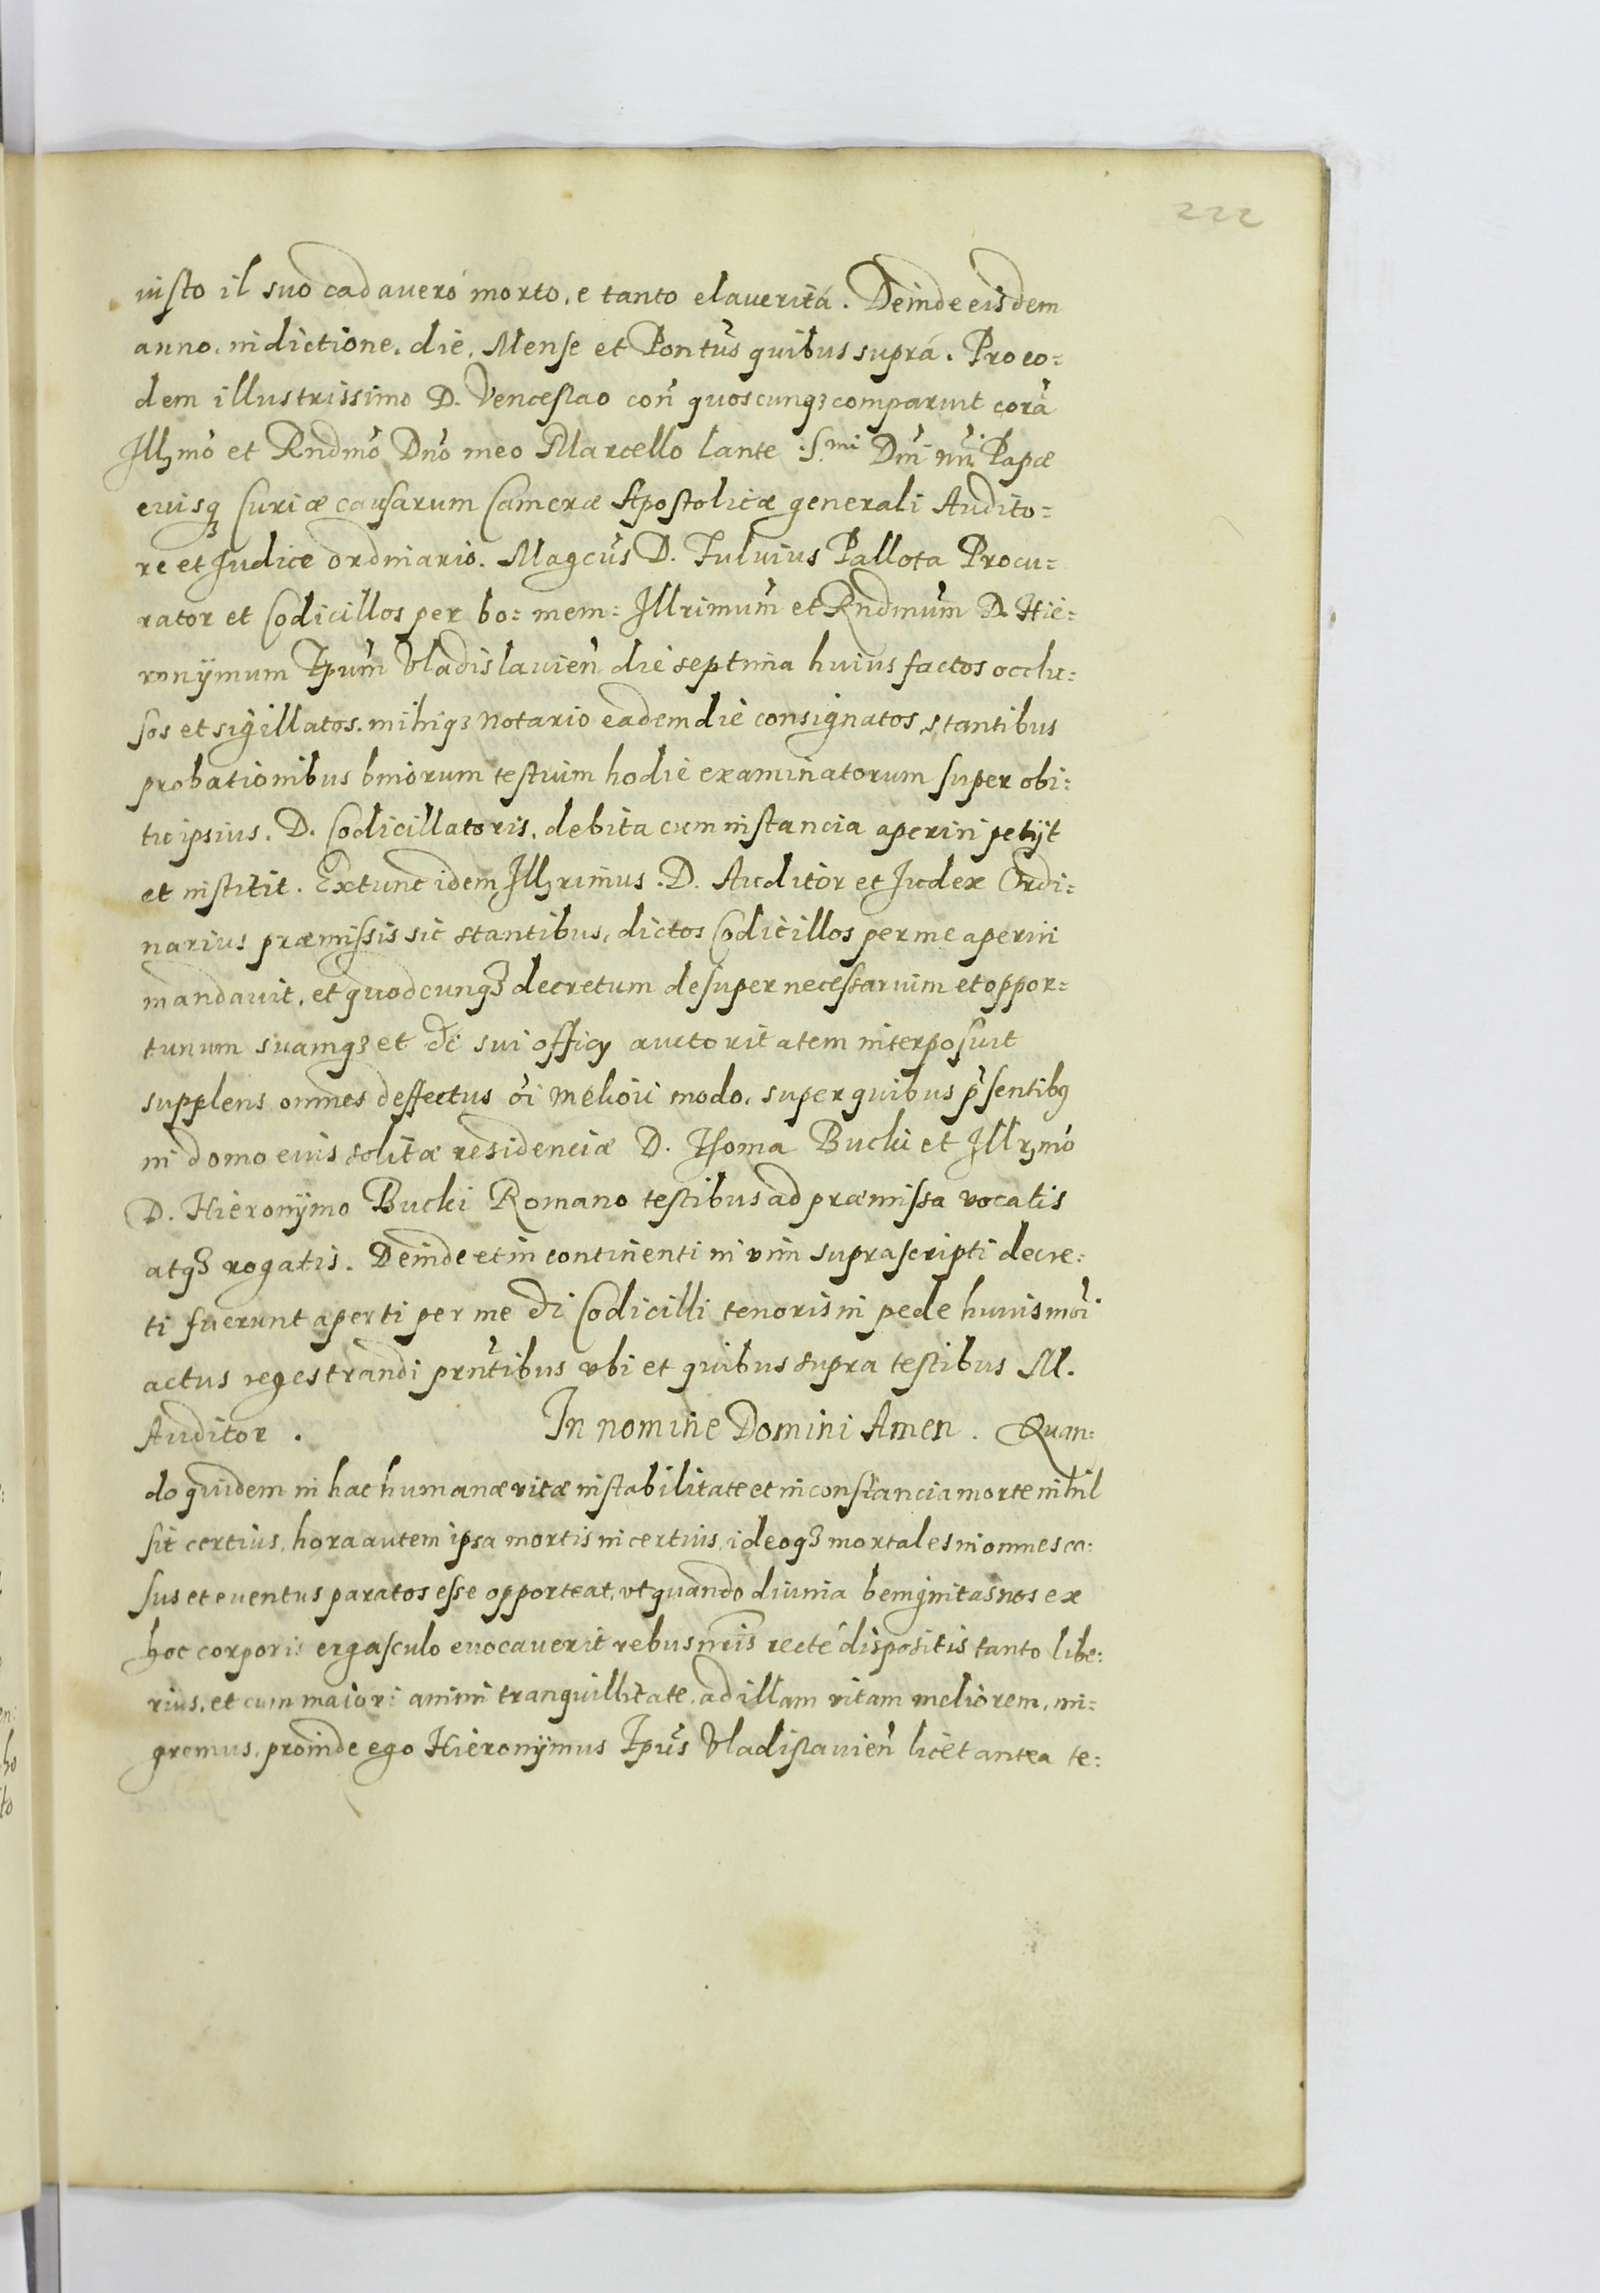 222
uisto il suo cadauero morto, e tanto elauerità. Deinde eisdem
anno, indictione, die, Mense et Pontūs quibus suprá. Pro eo=
dem illustrissimo D. Venceslao con̄ quoscunqȝ comparuit corā
Illȝmo et Rndmō Dnō meo Marcello lante S.mi Dn̄i nr̄i Papæ
eiusqȝ Curiæ causarum Cameræ Apostolicæ generali Audito=
re et Iudice ordinario. Magcūs D. Fuluius Pallota Procu=
rator et Codicillos per bo: mem: Illrimum̄ et Rndmum̄ D. Hie=
ronÿmum Ep̄um Vladislauien̄ die septima huius factos occlu=
sos et sigillatos, mihiqȝ Notario eadem die consignatos, stantibus
probationibus binorum testium hodie examinatorum super obi=
tu ipsius. D. Codicillatoris, debita cum instancia aperiri petÿt
et institit. Extunc idem Illȝrimus. D. Auditor et Iudex Ordi=
narius præmissis sic stantibus, dictos Codicillos per me aperiri
mandauit, et quodcunqȝ decretum desuper necessarium et oppor=
tunum suamqȝ et d̄i sui officÿ auctoritatem interposuit
supplens omnes deffectus ōi meliori modo, super quibus p̄sentibȝ
in domo eius solitæ residenciæ D. Thoma Bucki et Illrȝmo
D. Hieronÿmo Bucki Romano testibus ad præmissa vocatis
atqȝ rogatis. Deinde et in continenti in vim suprascripti decre=
ti fuerunt aperti per me d̄i Codicilli tenoris in pede huius mōi
actus regestrandi prn̄tibus vbi et quibus supra testibus M.
Auditor. In nomine Domini Amen. Quan=
do quidem in hac humanæ vitæ instabilitate et inconstancia morte nihil
sit certius, hora autem ipsa mortis incertius, ideoqȝ mortales in omnes ca=
sus et euentus paratos esse opporteat, vt quando diuina benignitas nos ex
hoc corporis ergasculo euocauerit rebus nr̄is recté dispositis tanto libe=
rius, et cum maiori animi tranquillitate, ad illam vitam meliorem, mi=
gremus, proinde ego Hieronÿmus Ep̄us Vladislauien̄ licet antea te=